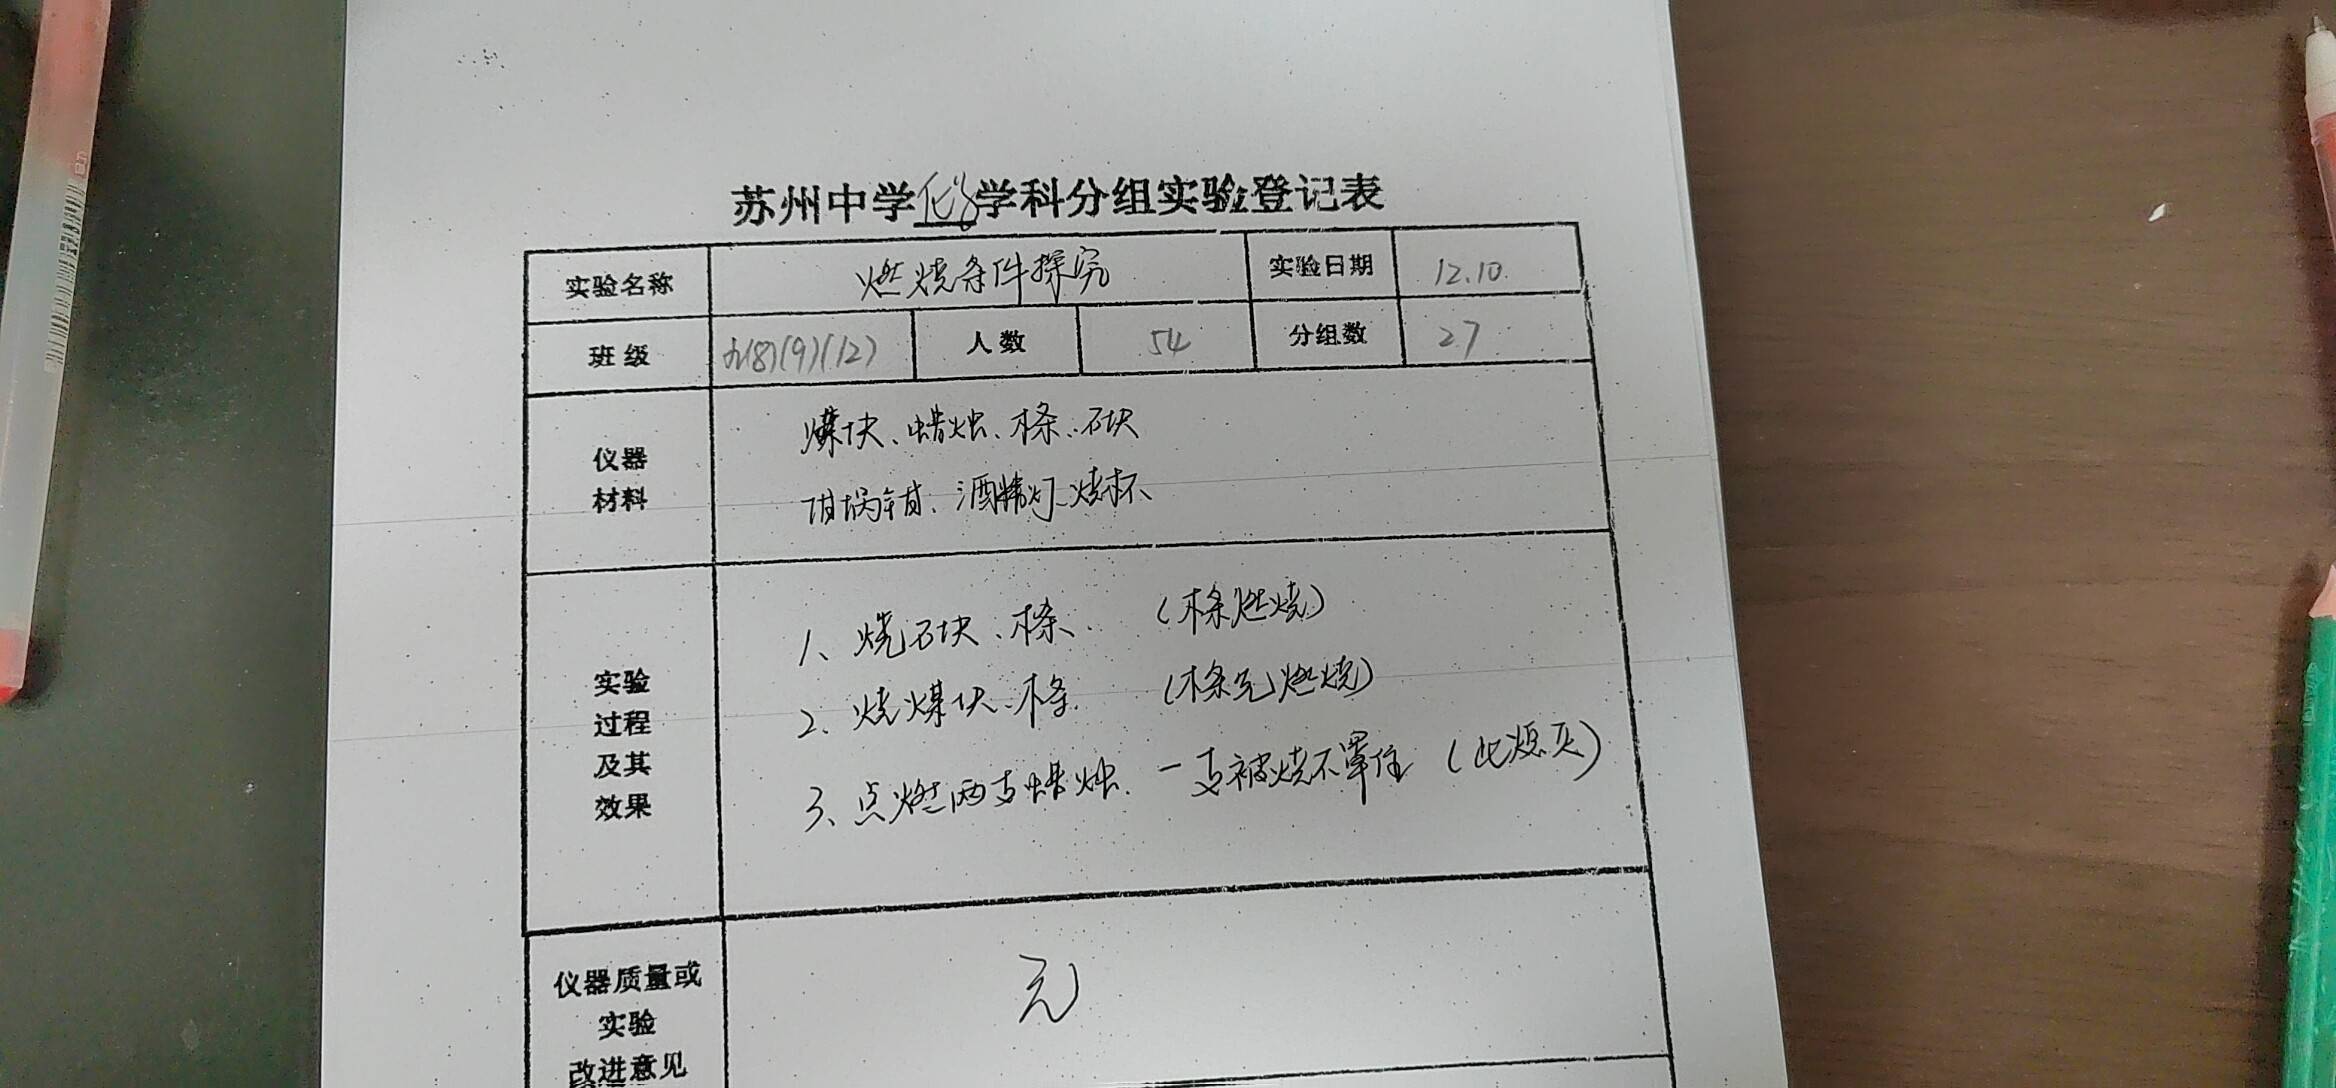 苏州中学化学学科分组实验登记表
实验名称 燃烧条件探究 实验日期 12.10.
班级 九(8)(9)(12) 人数 54 分组数 27
仪器
材料
煤块、蜡烛、木条、石块
坩埚钳、酒精灯、烧杯、
实验
过程
及其
效果
1、烧石块、木条、 (木条燃烧)
2、烧煤块、木条 (木条先燃烧)
3、点燃两支蜡烛、一支被烧杯罩住 (此熄灭)
仪器质量或
实验
改进意见
无